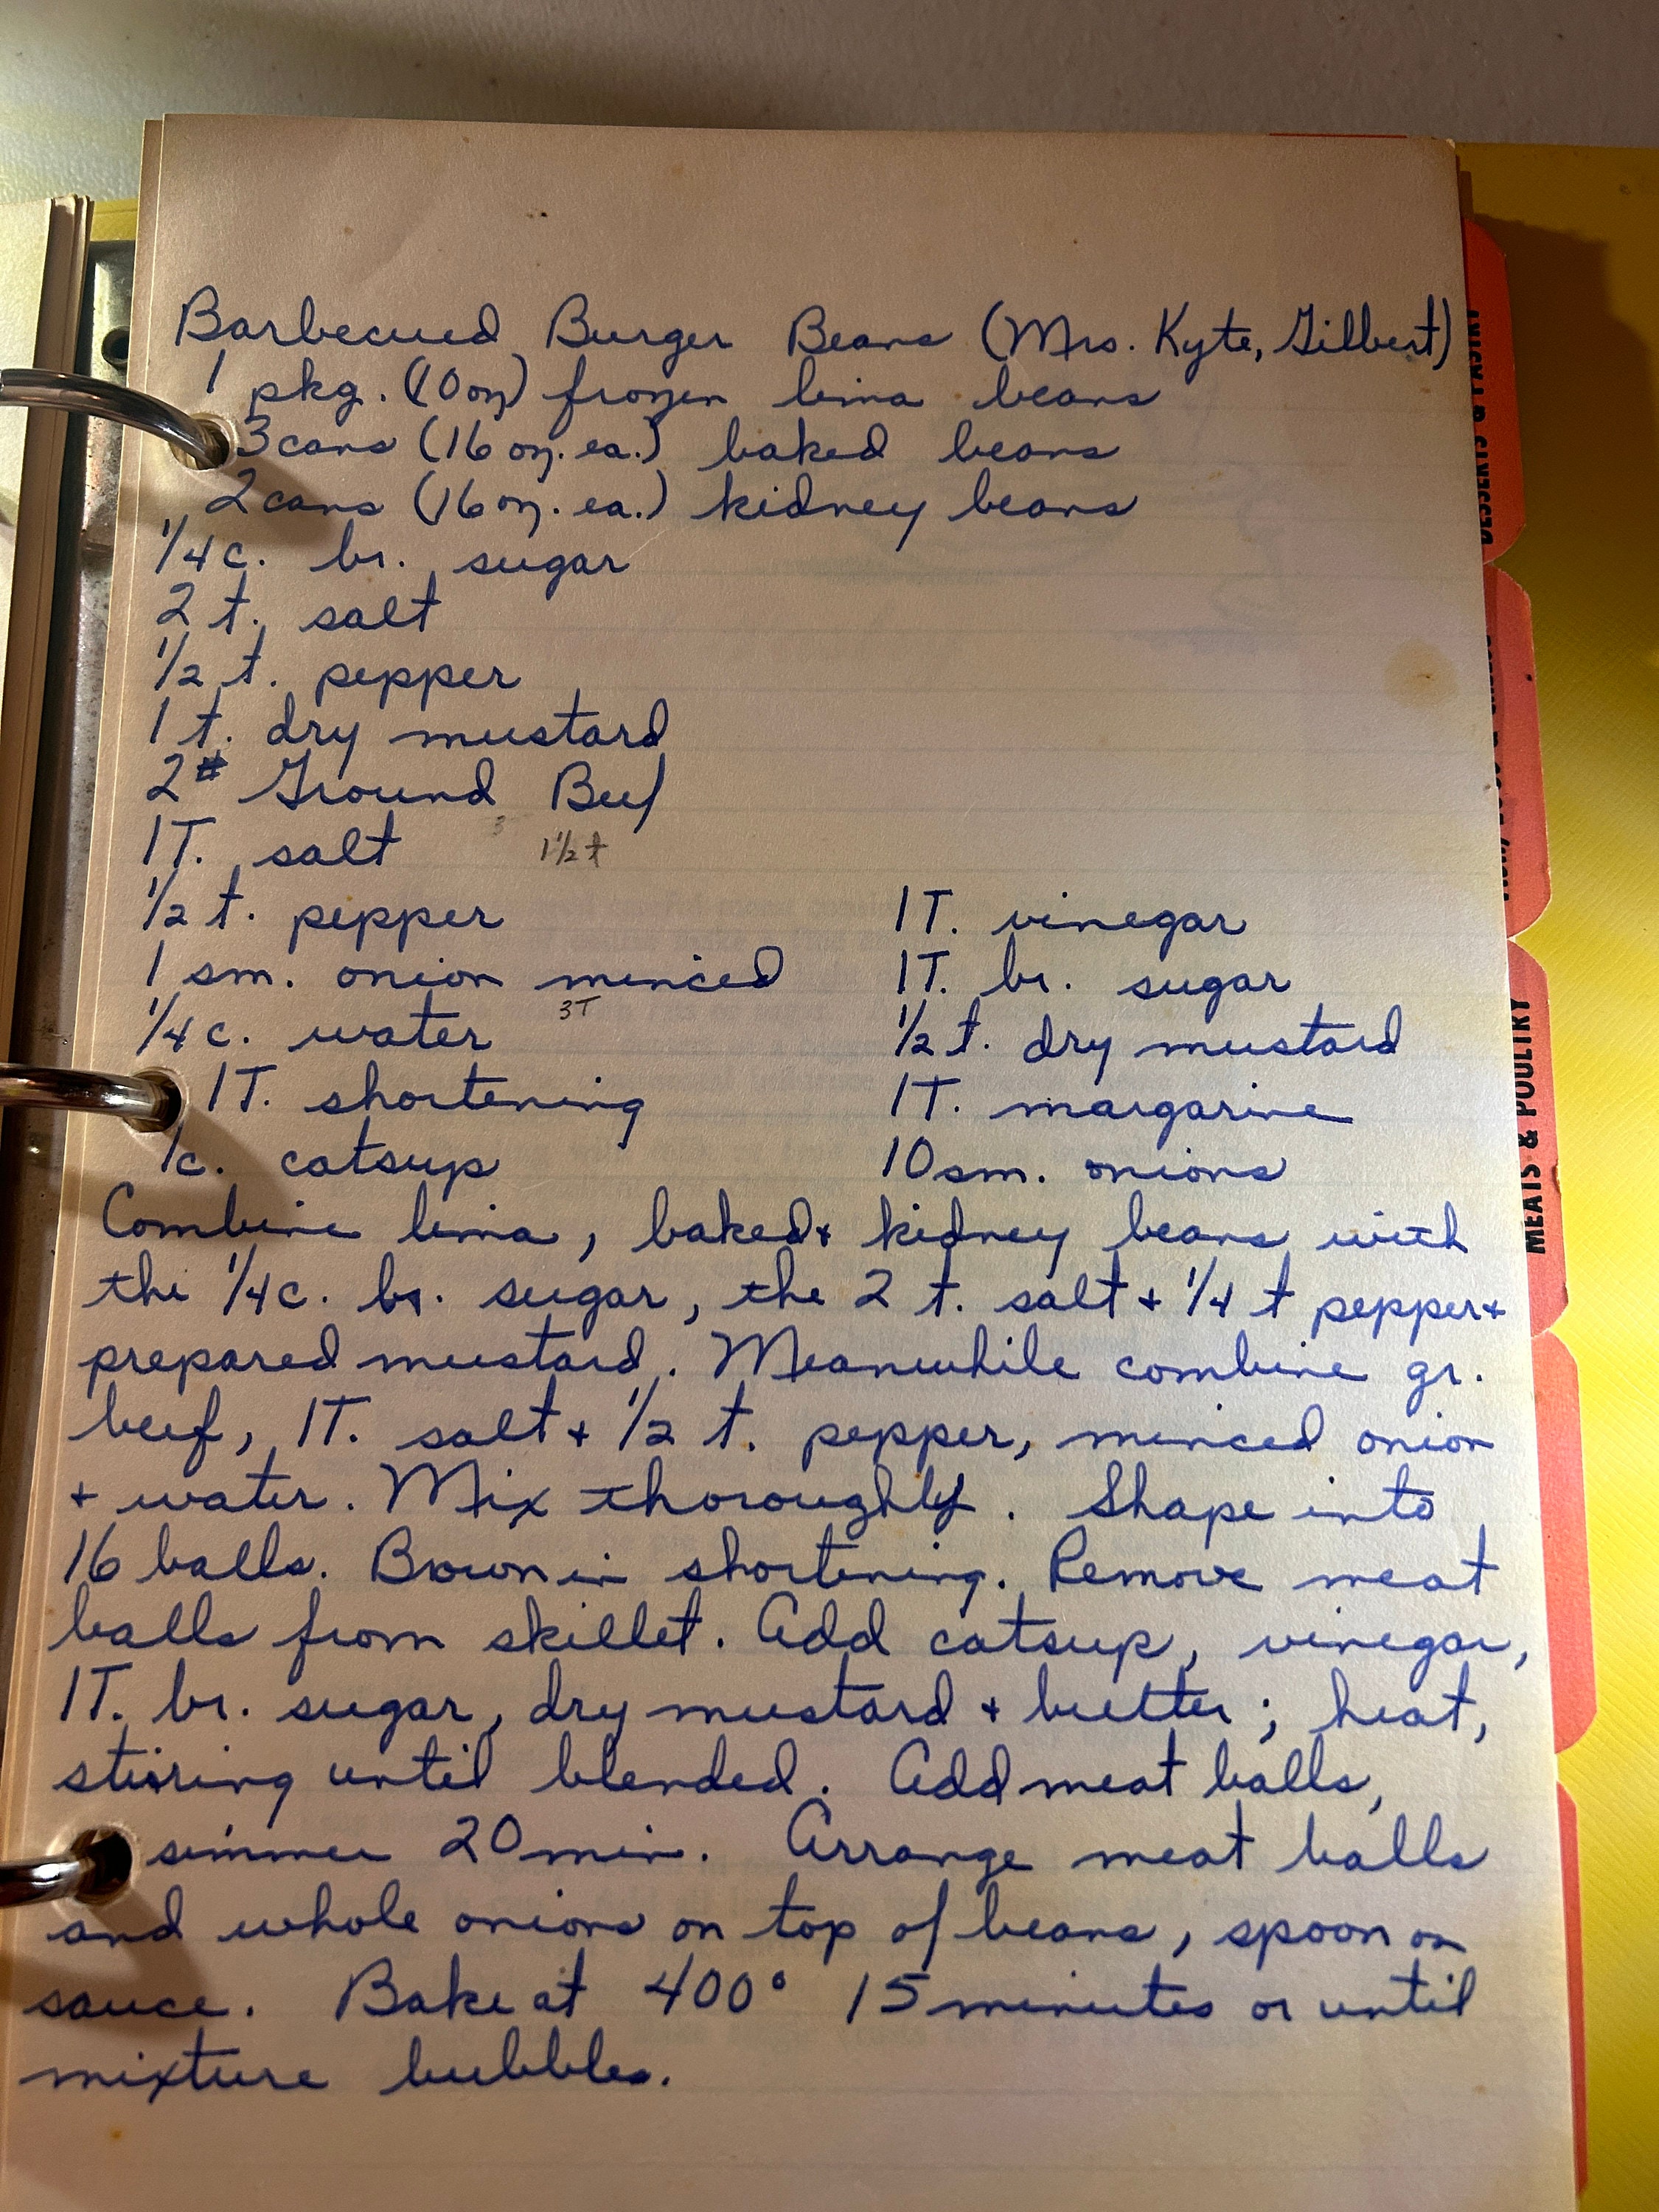 Barbecued Burger Beans (Mrs. Kyte, Gilbert)
1 pkg. (10 oz) frozen lima beans
3 cans (16 oz. ea.) baked beans
2 cans (16 oz. ea.) kidney beans
1/4 c. br. sugar
2 t. salt
1/2 t. pepper
1 t. dry mustard
2# Ground Beef
1 T. salt 1 1/2 t
1/2 t. pepper
1 sm. onion minced
1/4 c. water 3T
1 T. shortening
1 c. catsup
1 T. vinegar
1 T. br. sugar
1/2 t. dry mustard
1 T. margarine
10 sm. onions
Combine lima, baked + kidney beans with
the 1/4 c. br. sugar, the 2 t. salt + 1/4 t pepper +
prepared mustard. Meanwhile combine gr.
beef, 1 T. salt + 1/2 t. pepper, minced onion
+ water. Mix thoroughly. Shape into
16 balls. Brown in shortening. Remove meat
balls from skillet. Add catsup, vinegar,
1 T. br. sugar, dry mustard + butter; heat,
stirring until blended. Add meat balls,
simmer 20 min. Arrange meat balls
and whole onions on top of beans, spoon on
sauce. Bake at 400° 15 minutes or until
mixture bubbles.
MEATS & POULTRY